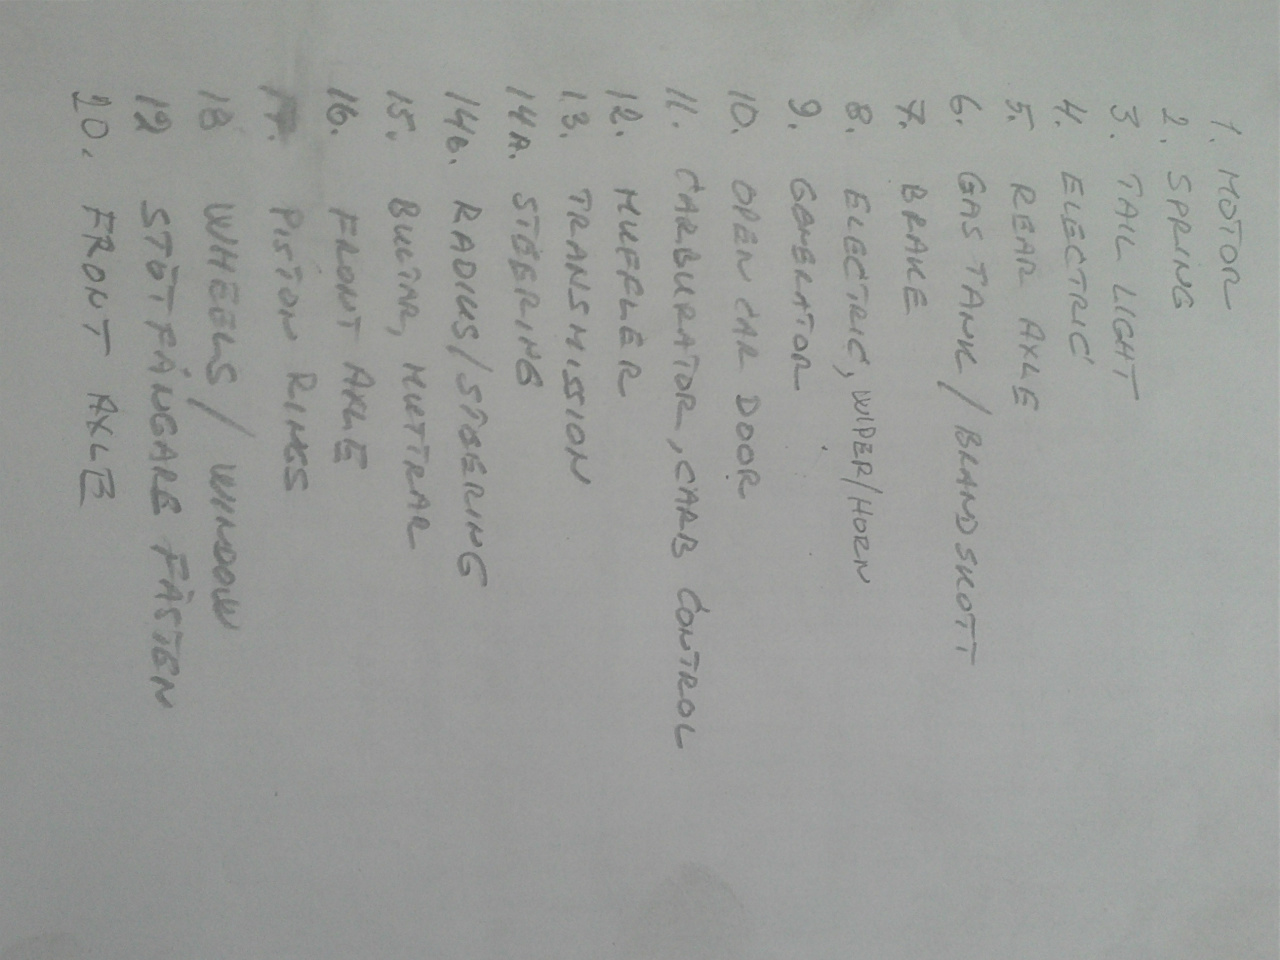 1. MOTOR
2. SPRING
3. TAIL LIGHT
4. ELECTRIC
5. REAR AXLE
6. GAS TANK / BRANDSKOTT
7. BRAKE
8. ELECTRIC, WIPER/HORN
9. GENERATOR
10. OPEN CAR DOOR
11. CARBURATOR, CARB CONTROL
12. MUFFLER
13. TRANSMISSION
14A. STEERING
14B. RADIUS/STEERING
15. BULTAR, MUTTRAR
16. FRONT AXLE
17. PISTON RINGS
18 WHEELS / WINDOW
19 STÖTFÅNGARE FÄSTEN
20. FRONT AXLE